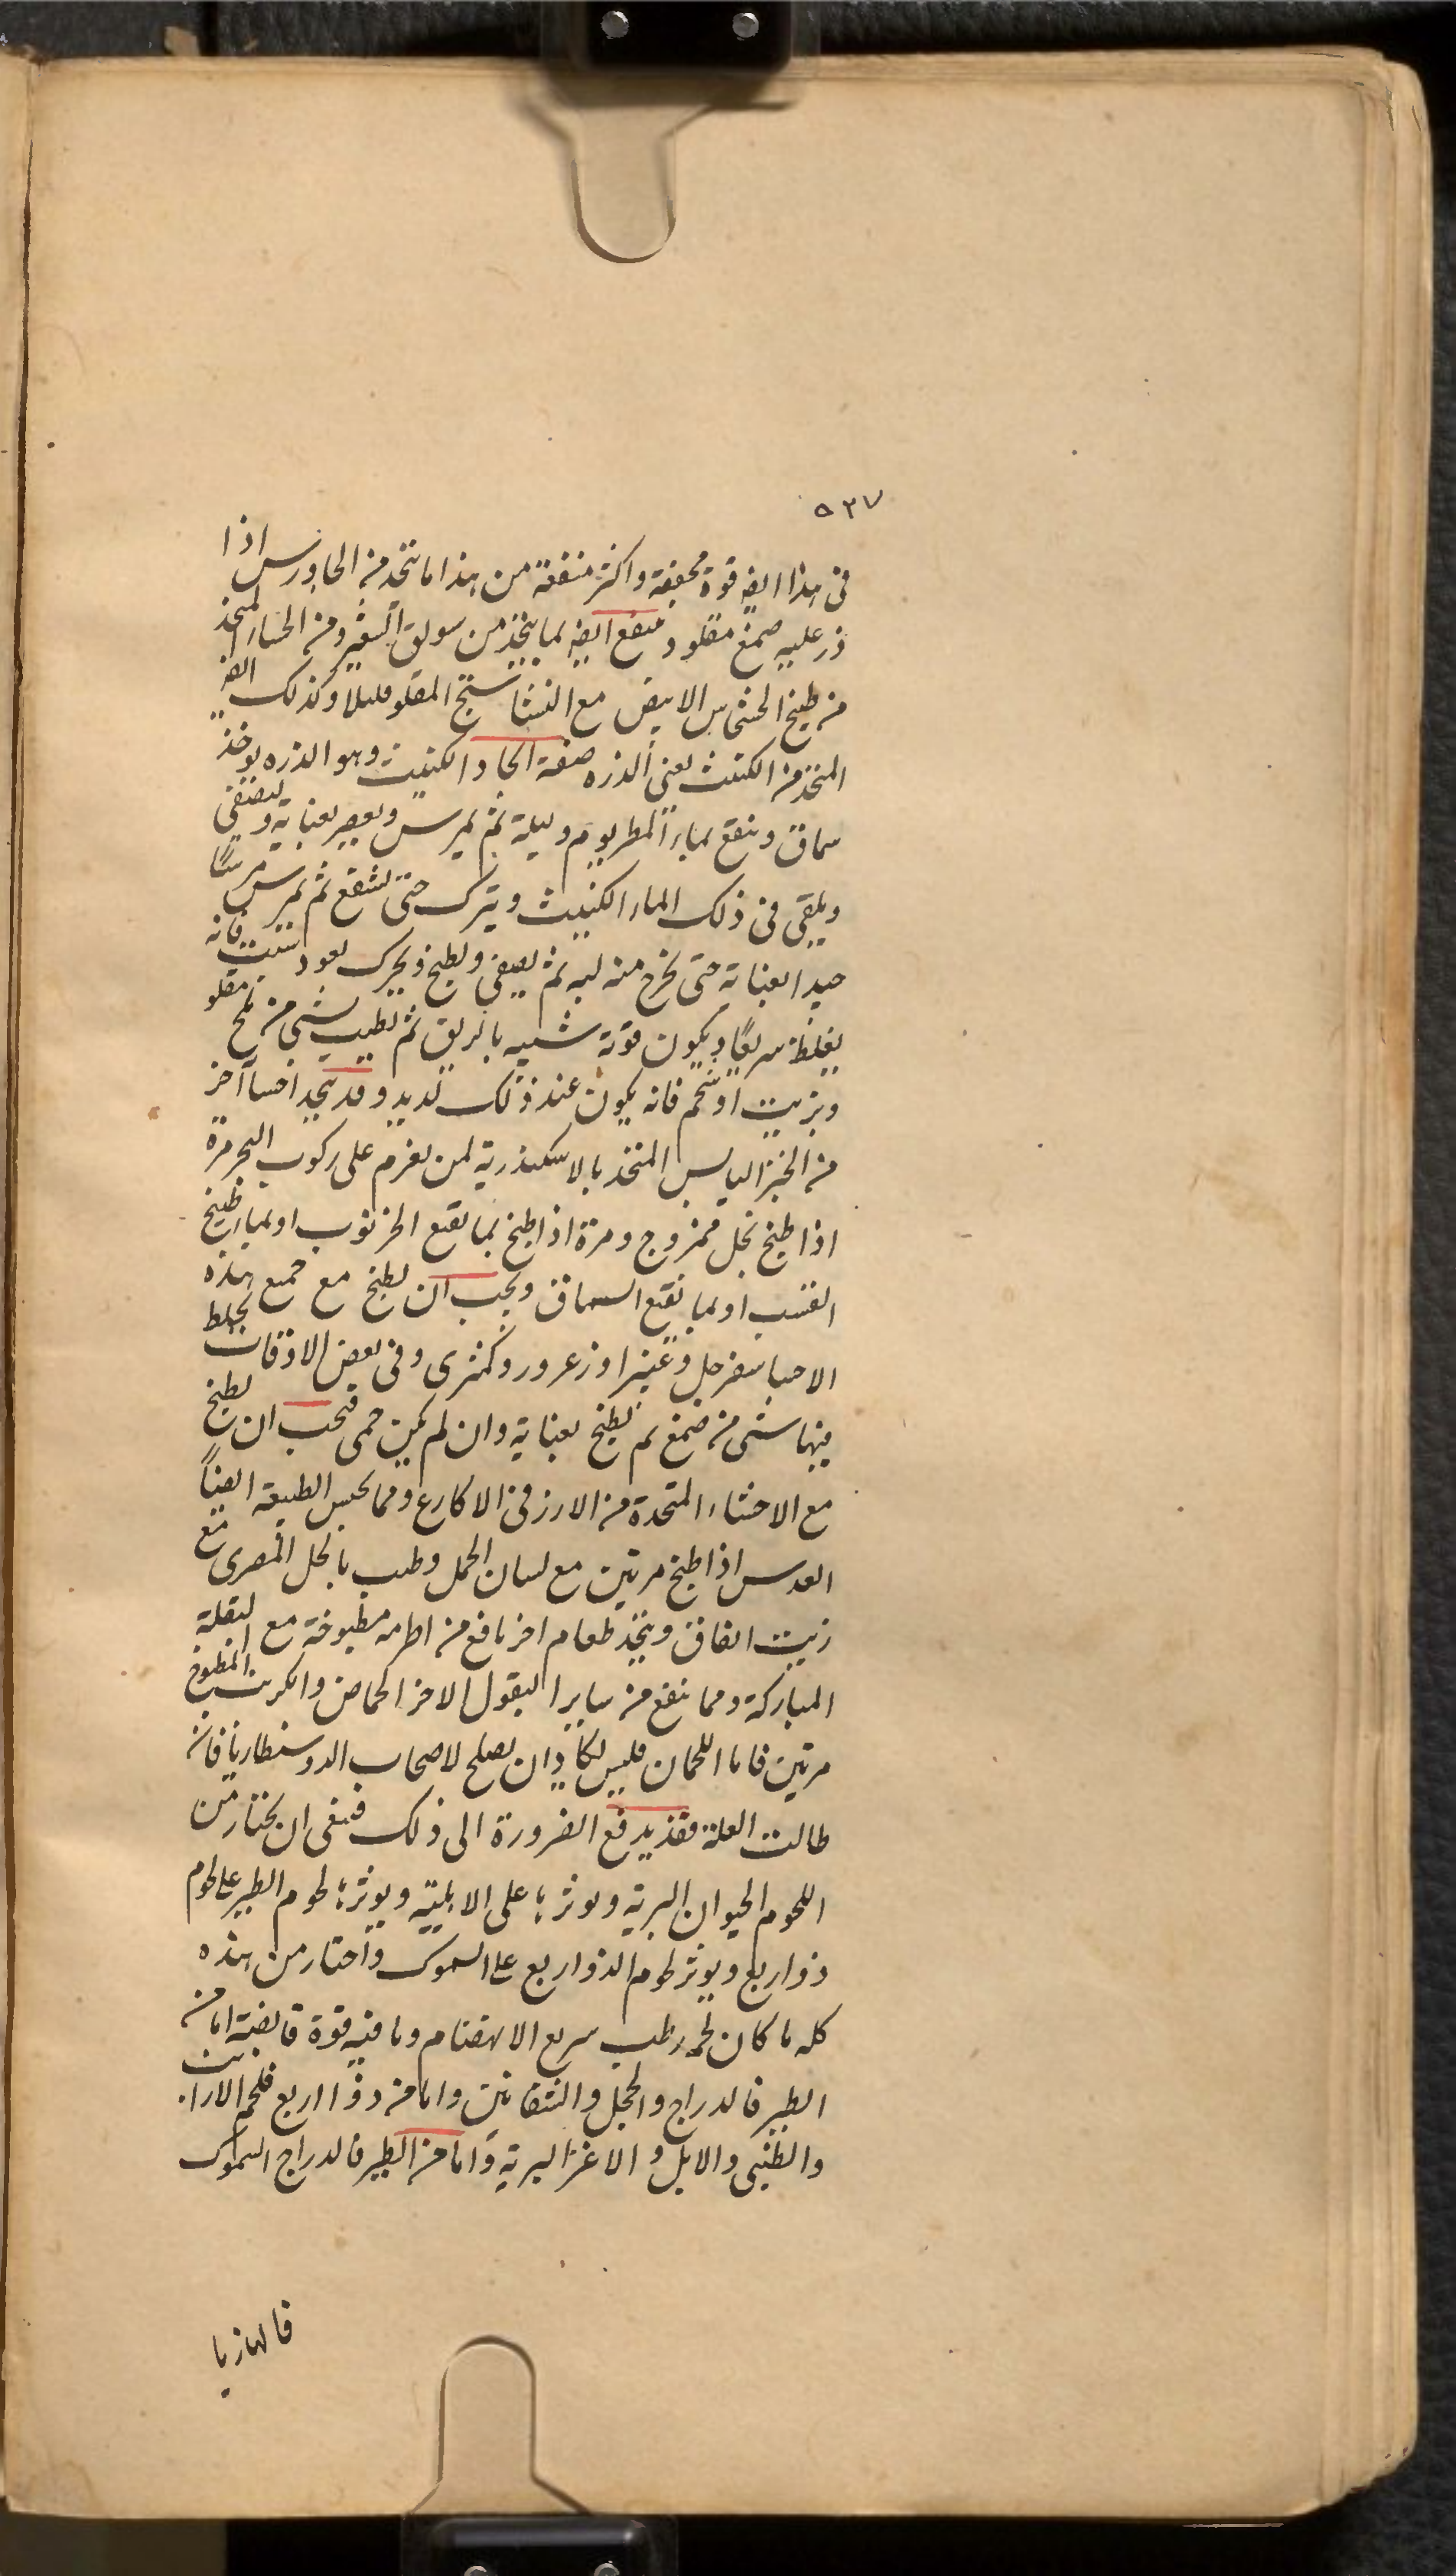 ٥٣٧
فى هذا ايضه قوة مجففة واكثر منفعة من هذا ما يتخذ من الجاورس اذا
ذر عليه صمغ مقلو وينفع ايضه بما يتخذ من سويق الشعير ومن الحساء المتخذ
من طبيخ الخشخاس الابيض مع النشاستج المقلو قليلا وكذلك ايضه
المتخذ من الكنيث يعنى الذره صفة الكنيث وهو الذره يوخذ
سماق وينقع بماء المطر يوم وليلة ثم يمرس ويعصر بعناية ويصفى
ويلقى فى ذلك الماء الكنيث ويترك حتى ينتقع ثم يمرس مرسًا
جيدا بعناية حتى يخرج منه لبه ثم يصفى ويطبخ ويحرك بعود شبت فانه
يغلظ سريعًا ويكون قوته شبيه بالدبق ثم يطيب بشى من ملح مقلو
وبزيت او شحم فانه يكون عند ذلك لذيد وقد يتخذ احساآ اخر
من الخبز اليابس المتخذ بالاسكندرية لمن يعزم على ركوب البحر مرة
اذا طبخ بخل ممزوج ومرة اذا طبخ بما نقيع الخرنوب او بماء طبيخ
القسب او بما نقيع السماق ويجب ان يطبخ مع جميع هذه
الاحسا سفرجل وغبيرا وزعرور وكمثرى وفى بعض الاوقات يخلط
فيها شى من صمغ ثم يطبخ بعناية وان لم يكن حمى فيجب ان يطبخ
مع الاحشاء المتخدة من الارز فى الاكارع ومما يحبس الطبيعة ايضاً
العدس اذا طبخ مرتين مع لسان الحمل وطيب بالخل المصرى مع
زيت انفاق ويتخذ طعام اخر نافع من اطريه مطبوخة مع البقلة
المباركة ومما ينفع من ساير البقول الاخر الحماض والكرنب المطبوخ
مرتين فاما اللحمان فليس يكاد ان يصلح لاصحاب الدوسنطاريا فان
طالت العلة فقد يدفع الضرورة الى ذلك فينبغى ان يختار من
اللحوم الحيوان البرية ويوثرها على الاهلية ويوثر لحوم الطير على لحوم
ذوار بع ويوثر لحوم الذوار بع على السموك واختار من هذه
كله ما كان لحمه رطب سريع الانهضام وما فيه قوة قابضة اما من
الطير فالدراج والحجل والشفانين واما من ذوا اربع فلحم الارانب
والظبى والابل والاعنز البرية واما من الطير فالدراج السموك